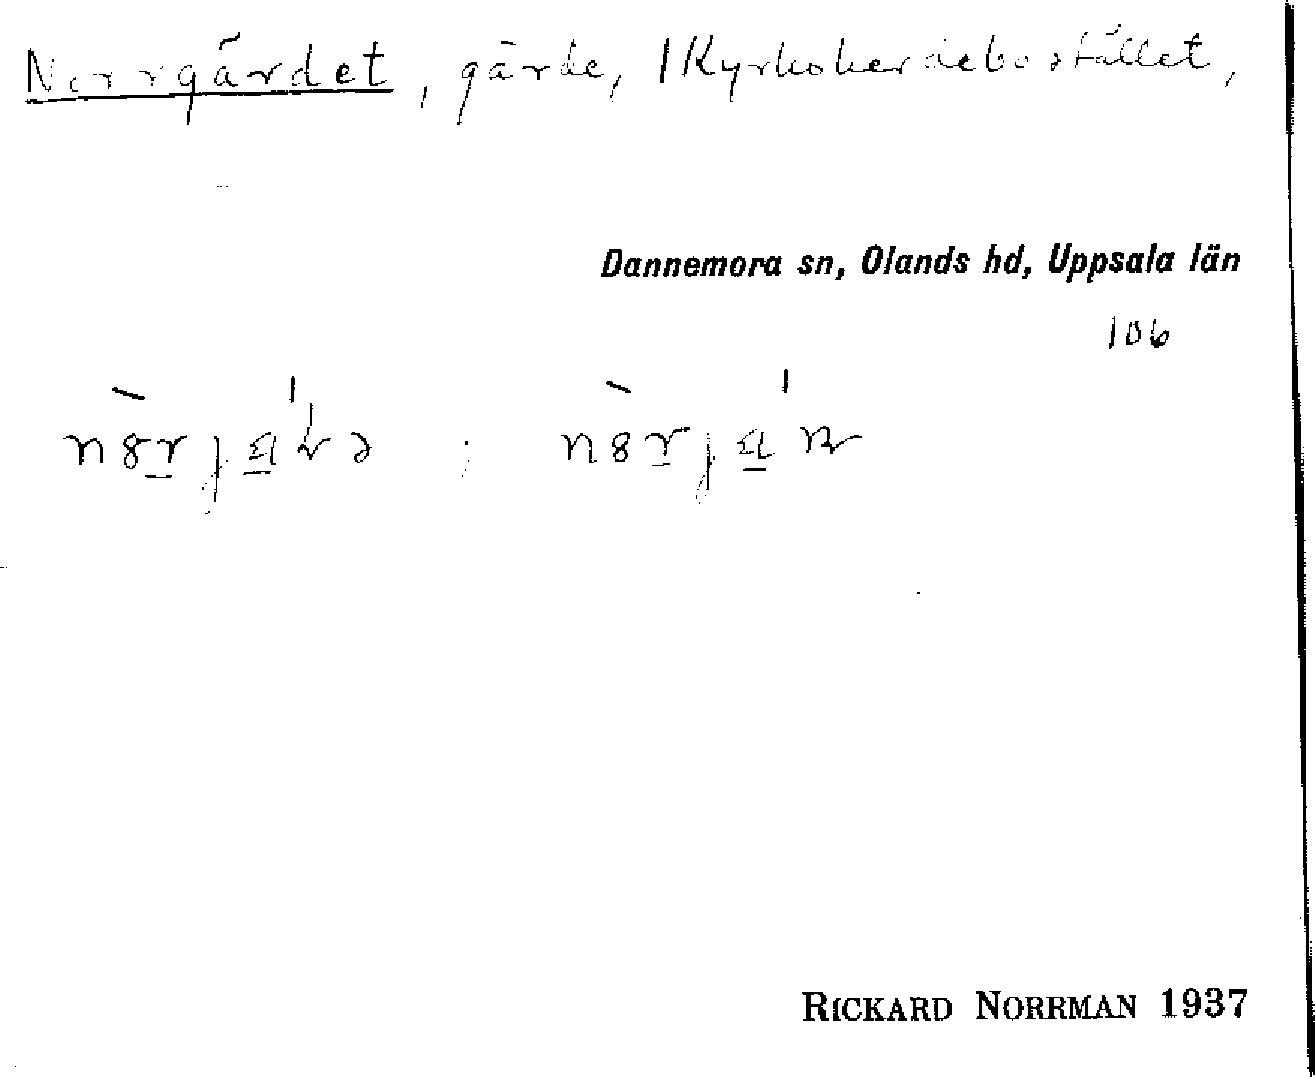 Norrgärdet, gärde, 1 Kyrkoherdebostället,
Dannemora sn, Olands hd, Uppsala län
106
RICKARD NORRMAN 1937